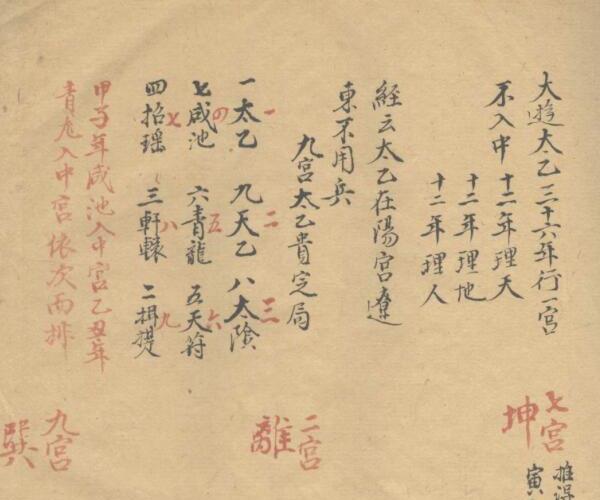 大遊太乙三十六年行一宮
不入中 十二年理天
十二年理地
十二年理人
經云太乙在陽宮遼
東不用兵
九宮太乙貴定局
一太乙 九天乙 八太陰
一 二 三
七咸池 六青龍 五天符
四 五 六
四招瑤 三軒轅 二揖提
七 八 九
甲子年咸池入中宮乙丑年
青龙入中宮依次而排
七宮
坤
二宮
離
九宮
巽
推得
寅